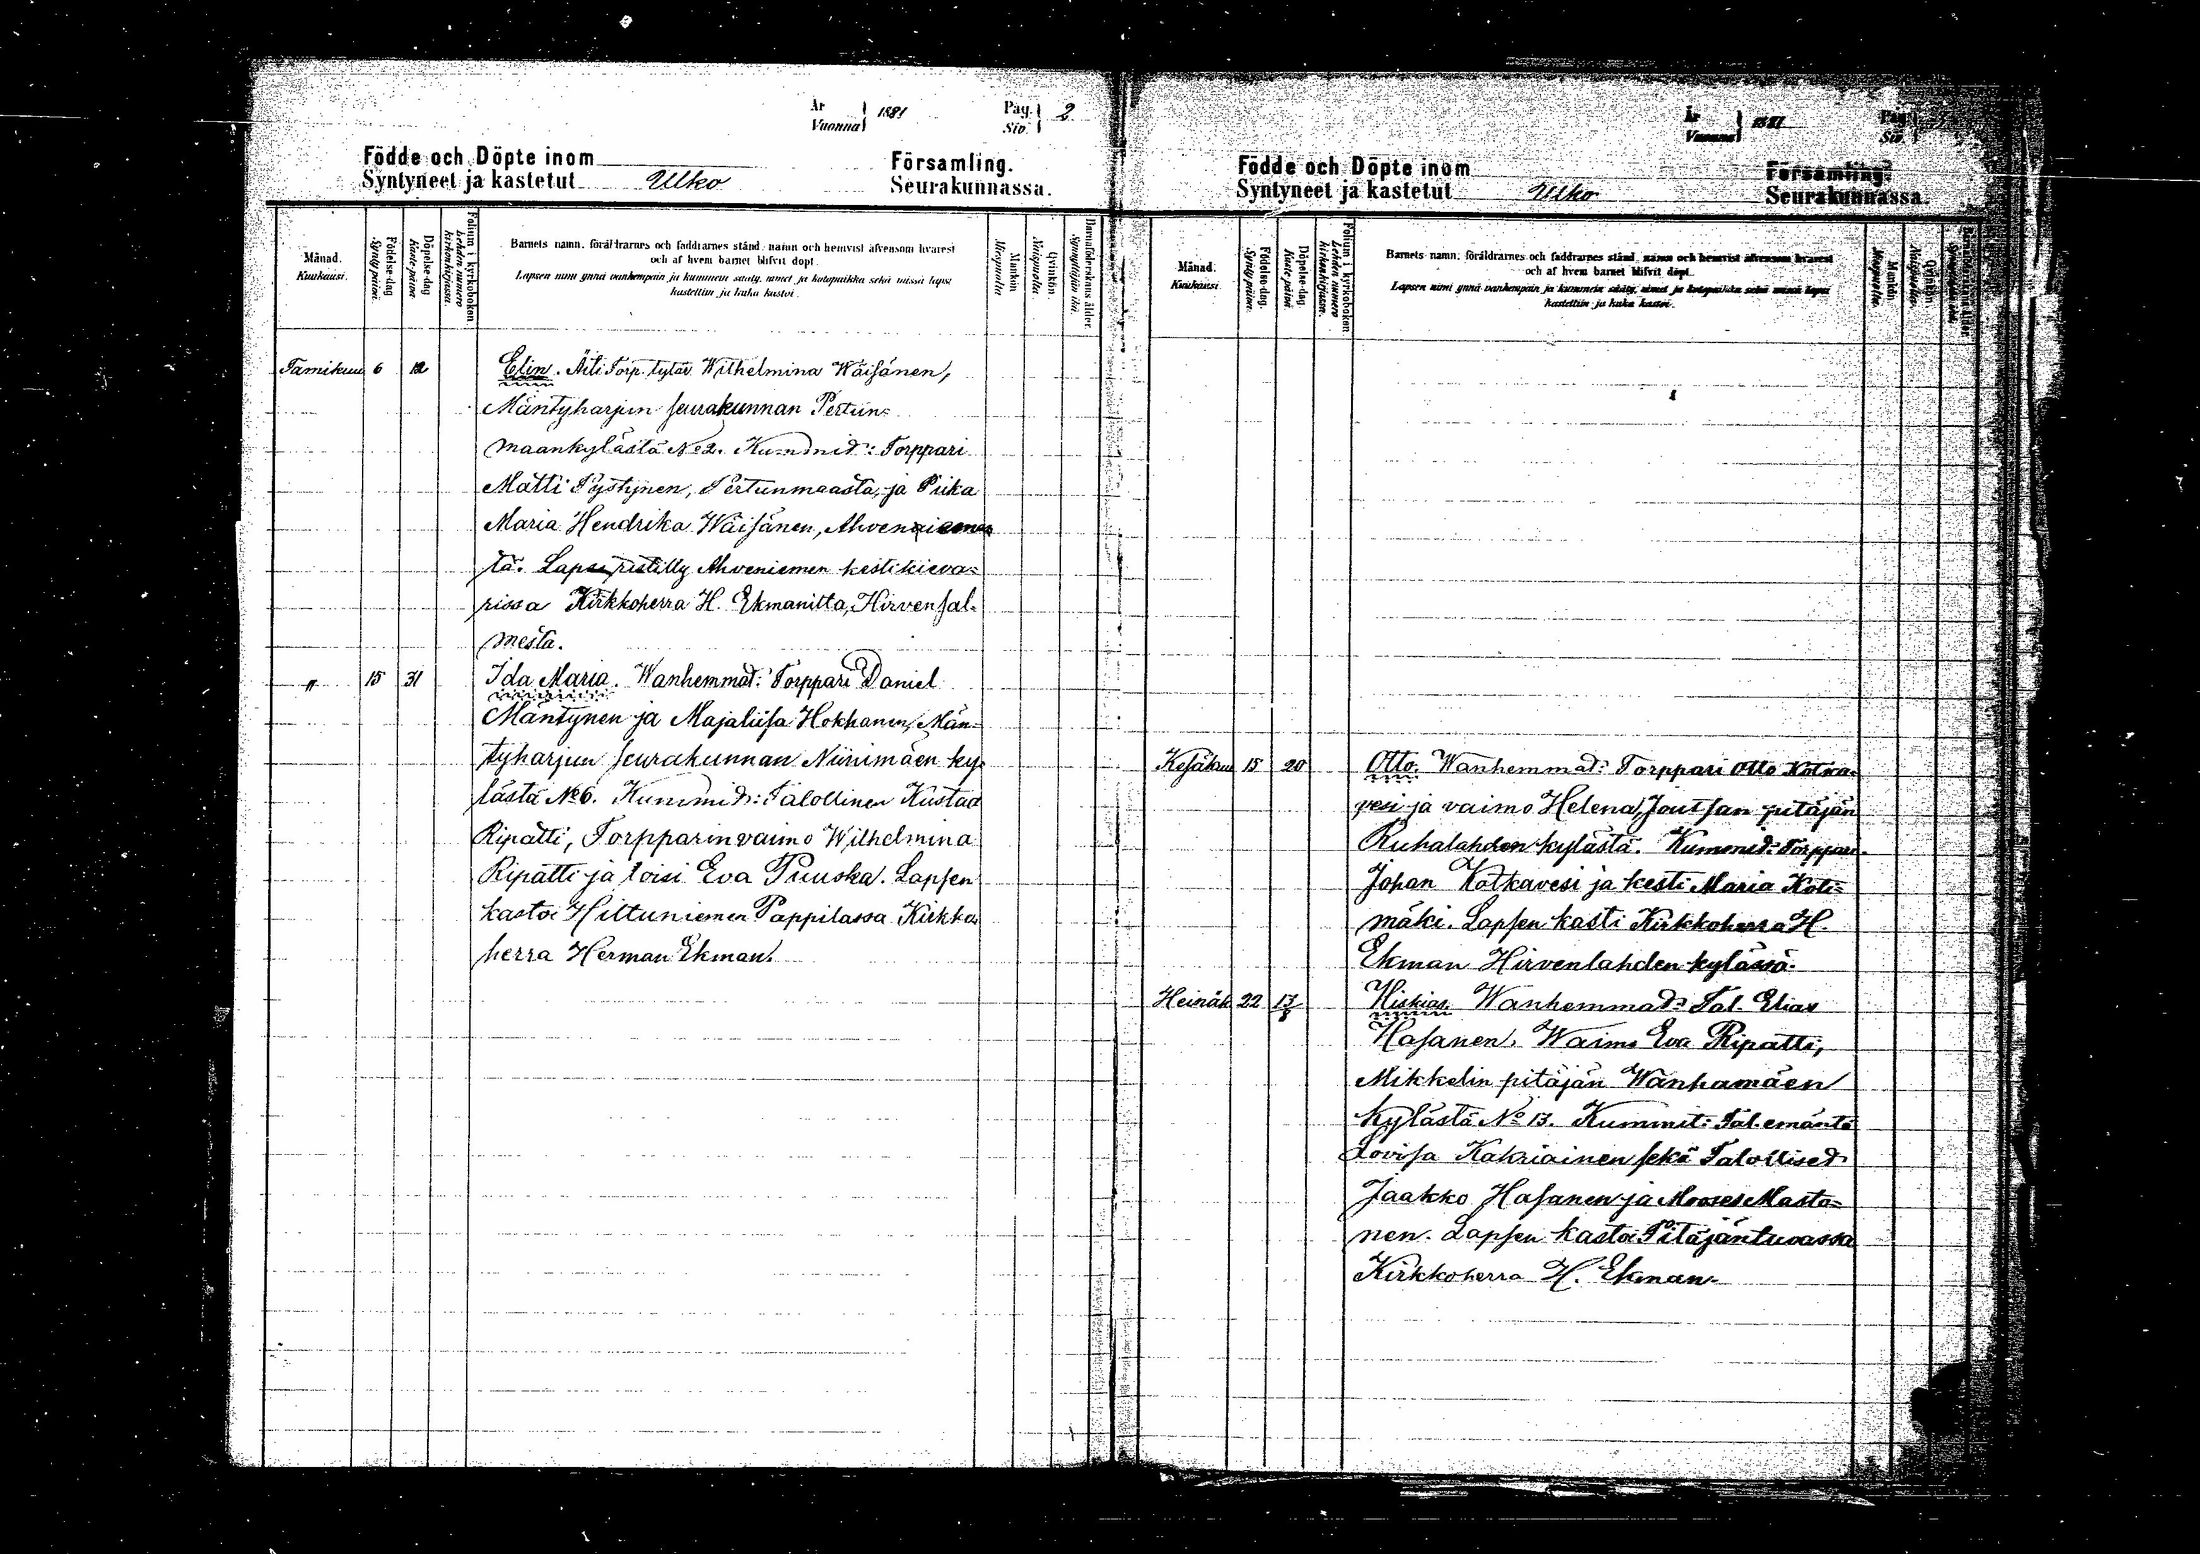 År
Vuonna } 1881
Pag.
Siv. } 2
Födde och Döpte inom
Syntyneet ja kastetut Ulko
Församling.
Seurakunnassa.
Månad.
Kuukausi.
Födelse-dag
Syntypäivä.
Döpelse-dag
Kaste-päivä
Folium i kyrkoboken
Lehden numero kirkonkirjassa.
Barnets namn, föräldrarnes och faddrarnes stånd, namn och hemvist äfvensom hvarest
och af hvem barnet blifvit döpt.
Lapsen nimi ynnä vanhempain ja kummein sääty, nimet ja kotopaikka sekä missä lapsi
kastettiin ja kuka kastoi.
Mankön
Miespuolta
Qvinkön
Naispuolta
Barnaföderskans ålder.
Synnyttäjän ikä.
Tamikuu 6 12 Elin. Äiti Torp. tytär Wilhelmina Wäisänen,
Mäntyharjun seurakunnan Pertun-
maankylästä No 2. Kummid: Torppari
Matti Pystynen, Pertunmaasta, ja Piika
Maria Hendrika Wäisänen,
tä. Lapsi ristitty Ahveniemen kestikieva-
rissa Kirkkoherra H. Ekmanilta, Hirvensal-
mesta.
" 15 31 Ida Maria. Wanhemmat: Torppari Daniel
Mäntynen ja Majaliisa Hokkanen, Män-
tyharjun seurakunnan Niinimäen ky-
lästä No 6. Kummid: Talollinen Kustaa
Ripatti, Torpparin vaimo Wilhelmina
Ripatti ja loisi Eva Puuska. Lapsen
kastoi Hiltuniemen Pappilassa Kirkko
herra Herman Ekman.
År
Vuonna } 1881
Pag.
Siv.
Födde och Döpte inom
Syntyneet ja kastetut Ulko
Församling.
Seurakunnassa.
Månad.
Kuukausi.
Födelse-dag.
Syntypäivä.
Döpelse-dag.
Kaste-päivä
Folium i kyrkoboken
Lehden numero kirkonkirjassa.
Barnets namn, föräldrarnes och faddrarnes stånd, namn och hemvist äfvensom hvarest
och af hvem barnet blifvit döpt.
Lapsen nimi ynnä vanhempain ja kummein sääty, nimet ja kotopaikka sekä missä lapsi
kastettiin ja kuka kastoi.
Mankön
Miespuolta
Qvinkön
Naispuolta
Kesäkuu 15 20 Otto. Wanhemmad: Torppari Otto Kotka-
vesi ja vaimo Helena, Joutsan pitäjän
Ruhalahden kylästä. Kummid: Torppari
Johan Kotkavesi ja kesti Maria Koti-
mäki. Lapsen kasti Kirkkoherra H.
Ekman Hirvenlahden kylässä.
Heinäk 22 13/8 Hiskias. Wanhemmad: Tal. Elias
Hasanen, Waimo Eva Ripatti,
Mikkelin pitäjän Wanhamäen
kylästä No 13. Kummit: Tal. emäntä
Lovisa Kakriainen sekä Talollised
Jaakko Hasanen ja Mooses Masto-
nen. Lapsen kastoi Pitäjäntuvassa
Kirkkoherra H. Ekman.